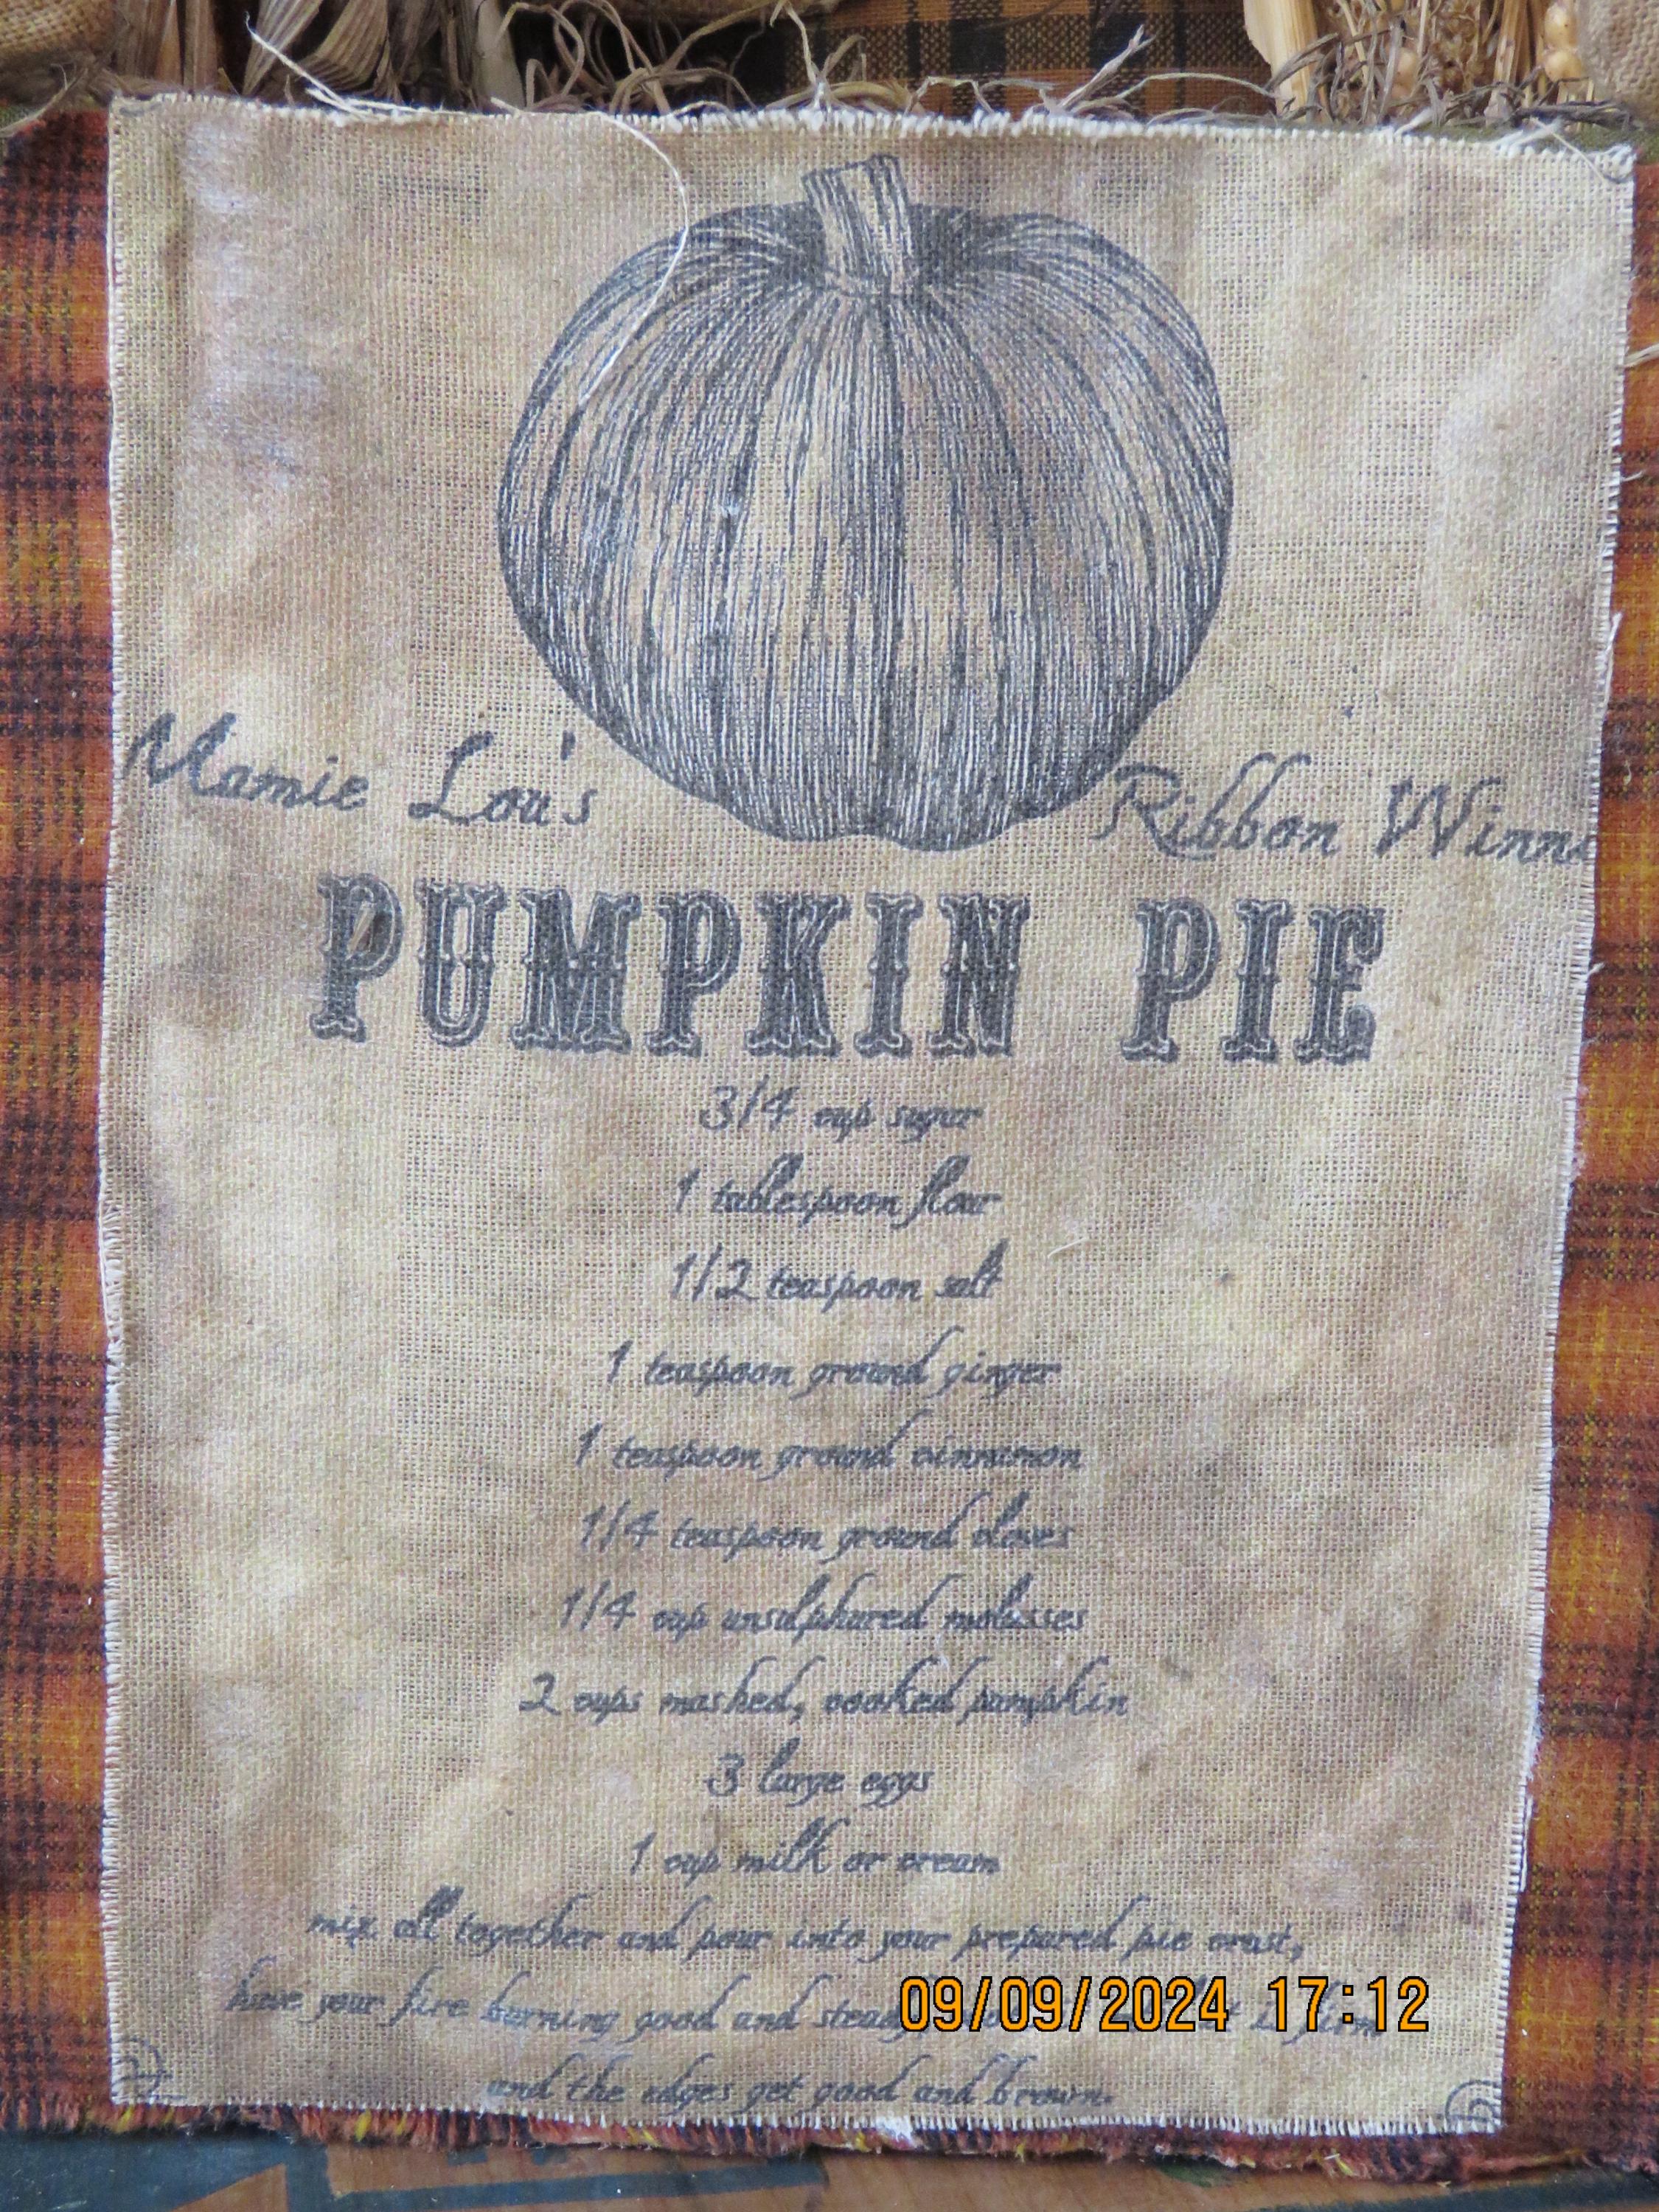 Mamie Lou's Ribbon Winn
PUMPKIN PIE
3/4 cup sugar
1 tablespoon flour
1/2 teaspoon salt
1 teaspoon ground ginger
1 teaspoon ground cinnamon
1/4 teaspoon ground cloves
1/4 cup unsulphured molasses
2 cups mashed, cooked pumpkin
3 large eggs
1 cup milk or cream
mix all together and pour into your prepared pie crust,
have your fire burning good and steady is firm
and the edges get good and brown.
09/09/2024 17:12